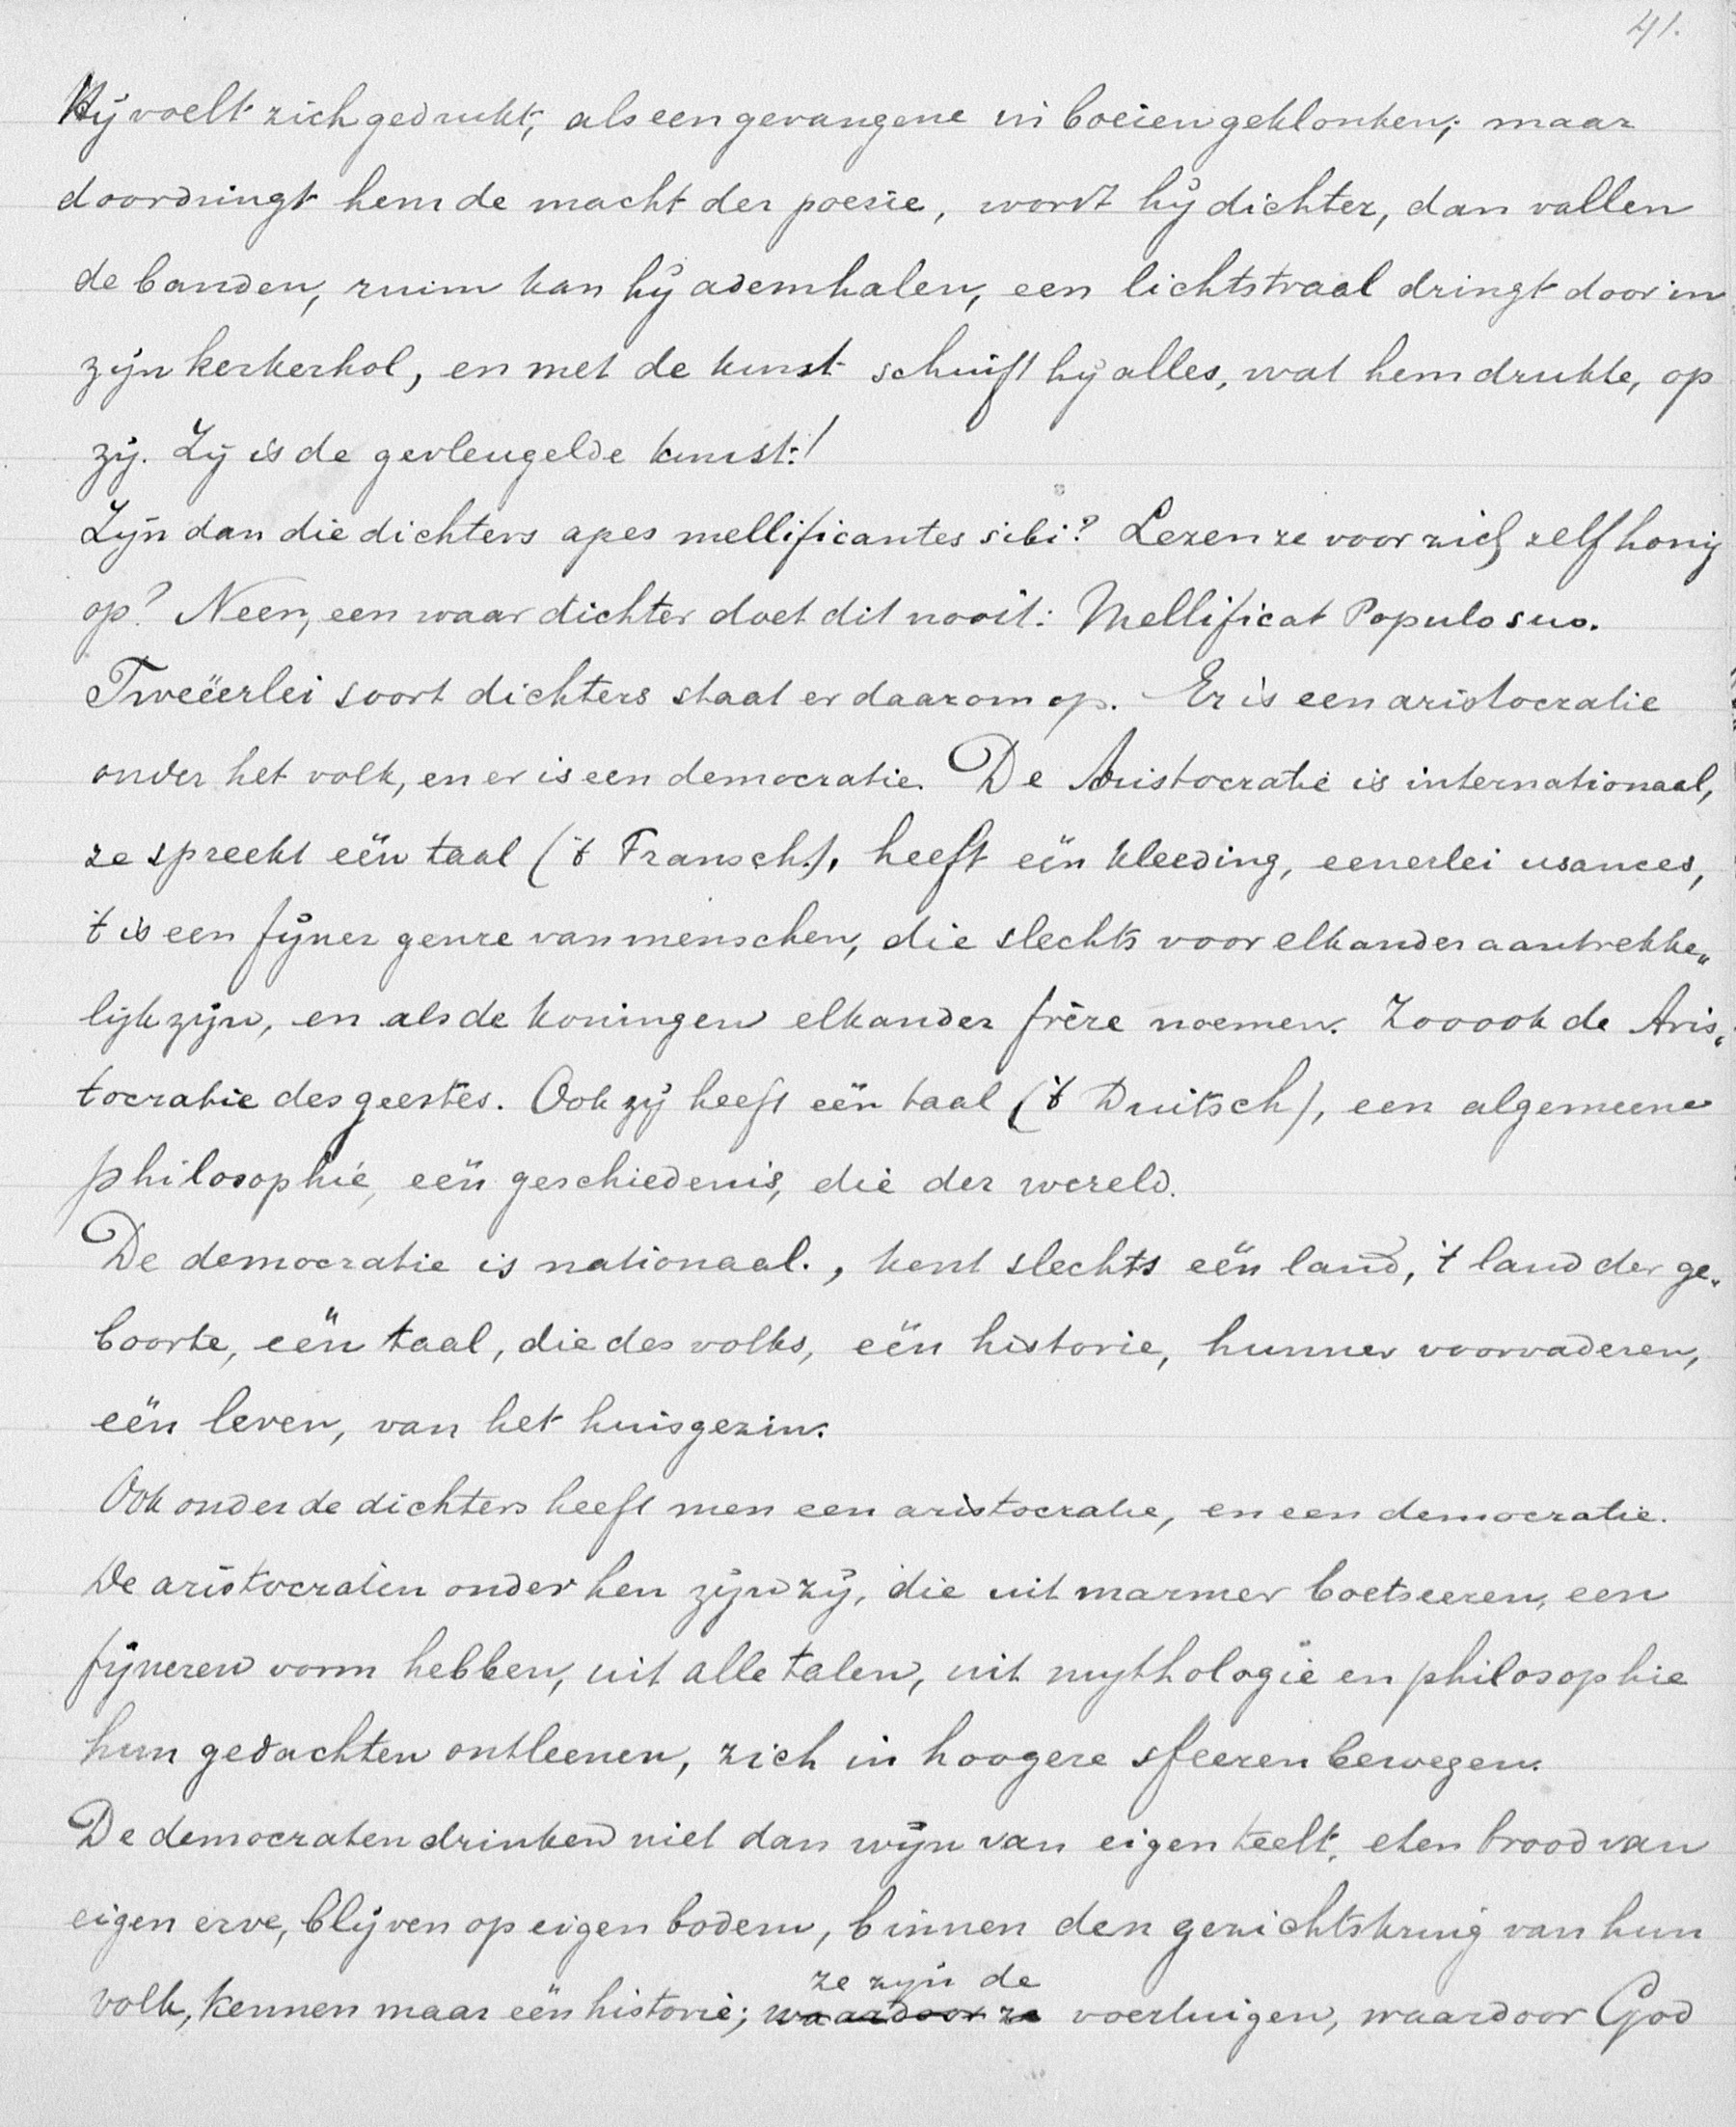 41.
Hij voelt zich gedrukt, als een gevangene in boeien geklonken; maar
doordringt hem de macht der poesie, wordt hij dichter, dan vallen
de banden, ruim kan hij ademhalen, een lichtstraal dringt door in
zijn kerkerhol, en met de kunst schuift hij alles, wat hem drukte, op
zij. Zij is de gevleugelde kunst!
Zijn dan die dichters apes mellificantes sibi? Lezen ze voor zich zelf honig
op? Neen, een waar dichter doet dit nooit: Mellificat Populo suo.
Tweeërlei soort dichters staat er daarom op. Er is een aristocratie
onder het volk, en er is een democratie. De Aristocratie is internationaal,
ze spreekt eën taal ('t Fransch), heeft eën kleeding, eenerlei usances,
't is een fijner genre van menschen, die slechts voor elkander aantrekke„
lijk zijn, en als de koningen elkander frère noemen. Zoo ook de Aris„
tocratie des geestes. Ook zij heeft eën taal ('t Duitsch), een algemeene
philosophie, eën geschiedenis, die der wereld.
De democratie is nationaal., kent slechts eën land, 't land der ge„
boorte, eën taal, die des volks, eën historie, hunner voorvaderen,
eën leven, van het huisgezin.
Ook onder de dichters heeft men een aristocratie, en een democratie.
De aristocraten onder hen zijn zij, die uit marmer boetseeren, een
fijneren vorm hebben, uit alle talen, uit mythologie en philosophie
hun gedachten ontleenen, zich in hoogere sfeeren bewegen.
De democraten drinken niet dan wijn van eigen teelt, eten brood van
eigen erve, blijven op eigen bodem, binnen den gezichtskring van hun
ze zijn de
volk, kennen maar eën historie; waardoor ze voertuigen, waardoor God